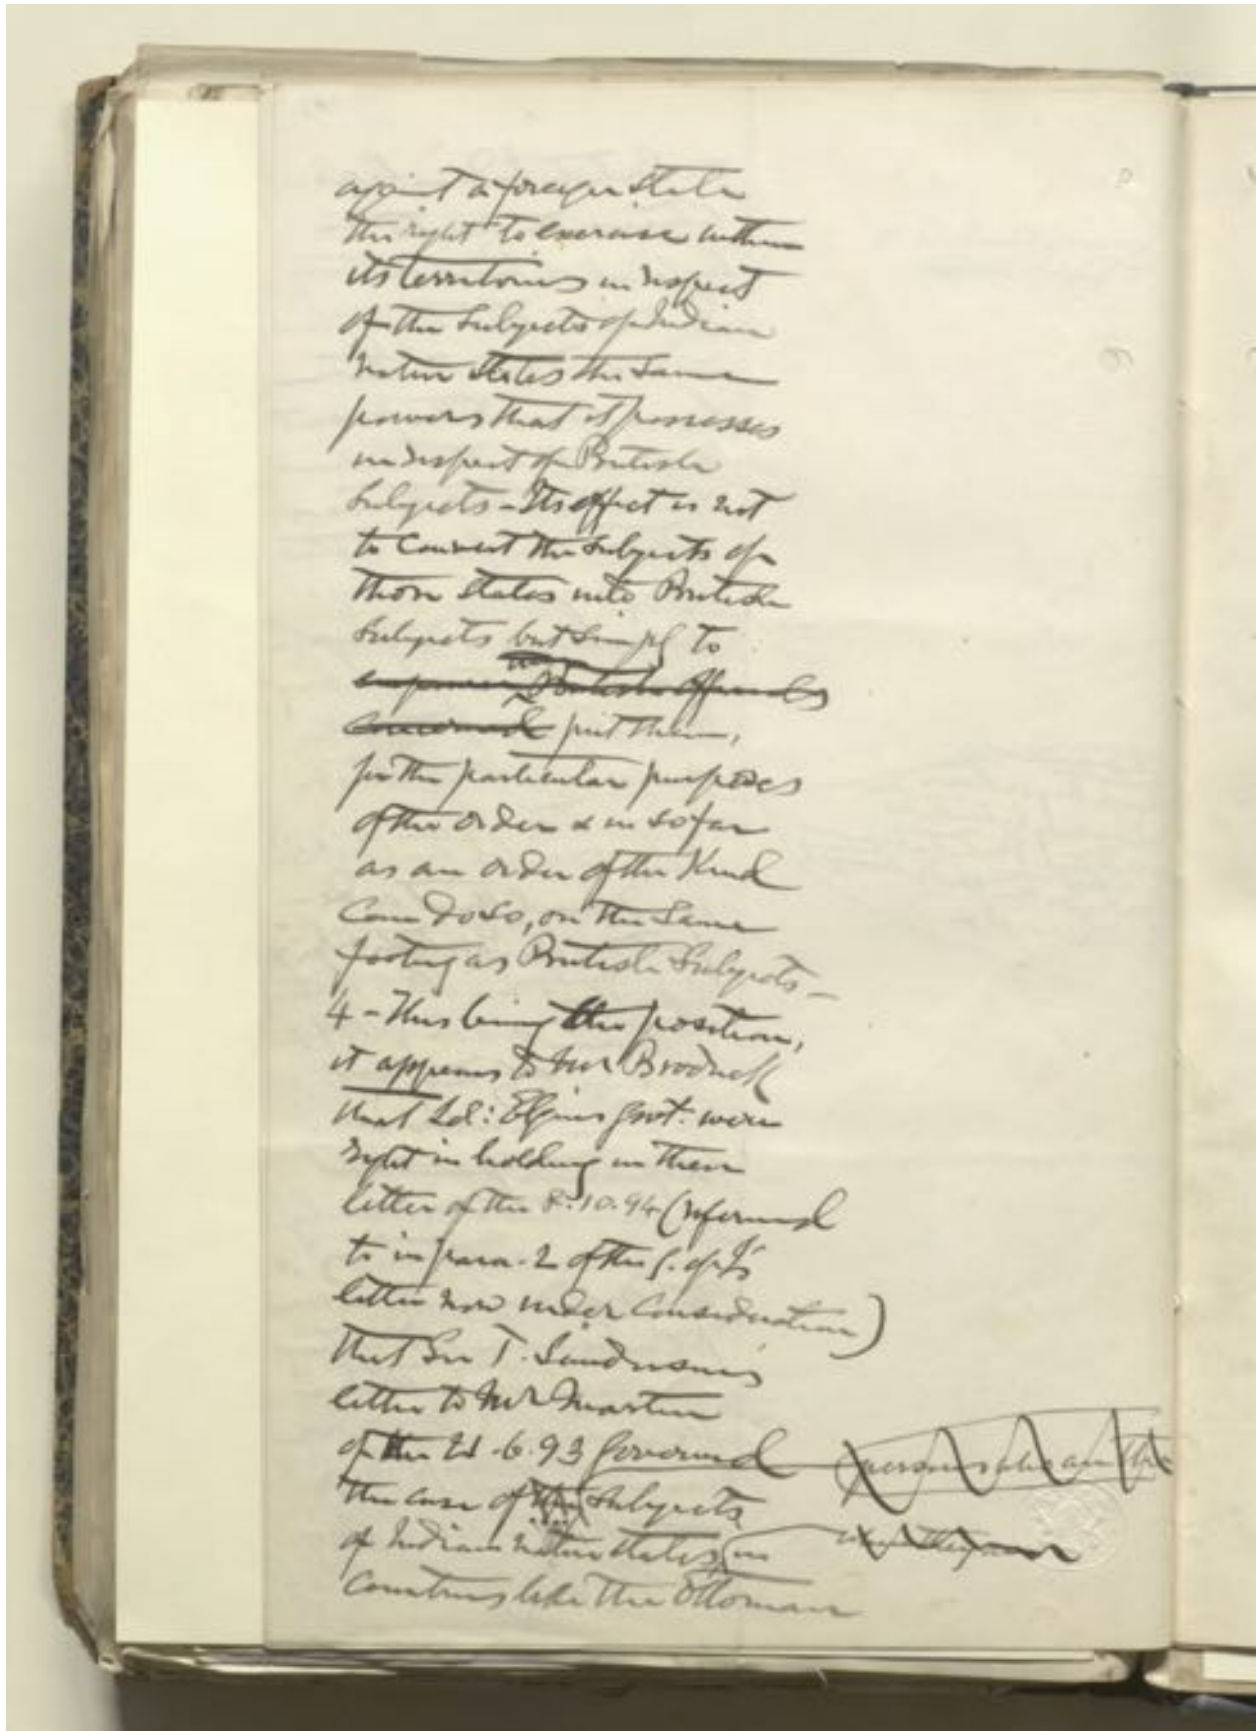 against a foreign state
the right to exercise within
its territories in respect
of the subjects of Indian
Native States the same
powers that it possesses
in respect of British
subjects - Its effect is not
to convert the subjects of
those states into British
subjects but simply to
empower British officials
concerned put them,
for the particular purposes
of the order & in so far
as an order of the kind
can do so, on the same
footing as British subjects -
4 - This being the position,
it appears to Mr Brodrick
that Ld: Elgin's Govt. were
right in holding in their
letter of the 8.10.94 (referred
to in para. 2 of the G. of I's
letter now under consideration)
that Sir T. Sanderson's
letter to Mr Martin
of the 21.6.93 governed
persons who are the
the case of the subjects
of Indian native states, in
when they are
countries like the Ottoman